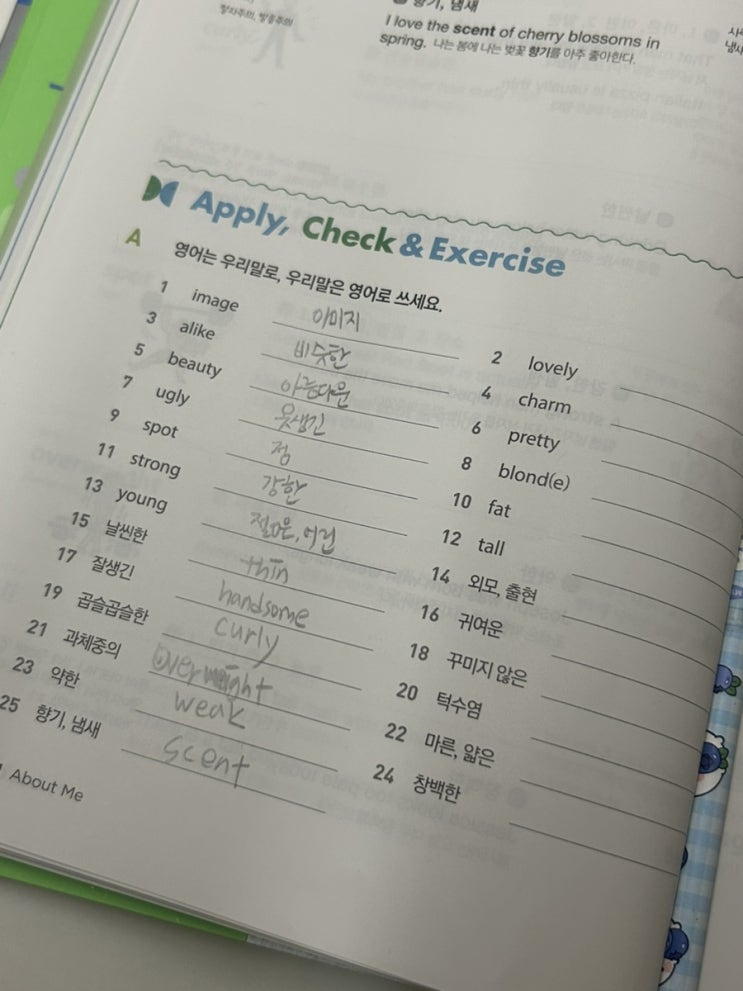 향기, 냄새
I love the scent of cherry blossoms in
spring. 나는 봄에 나는 벚꽃 향기를 아주 좋아한다.
Apply, Check & Exercise
A 영어는 우리말로, 우리말은 영어로 쓰세요.
1 image 이미지 2 lovely
3 alike 비슷한 4 charm
5 beauty 아름다운 6 pretty
7 ugly 못생긴 8 blond(e)
9 spot 점 10 fat
11 strong 강한 12 tall
13 young 젊은, 어린 14 외모, 출현
15 날씬한 thin 16 귀여운
17 잘생긴 handsome 18 꾸미지 않은
19 곱슬곱슬한 curly 20 턱수염
21 과체중의 overweight 22 마른, 얇은
23 약한 weak 24 창백한
25 향기, 냄새 scent
About Me